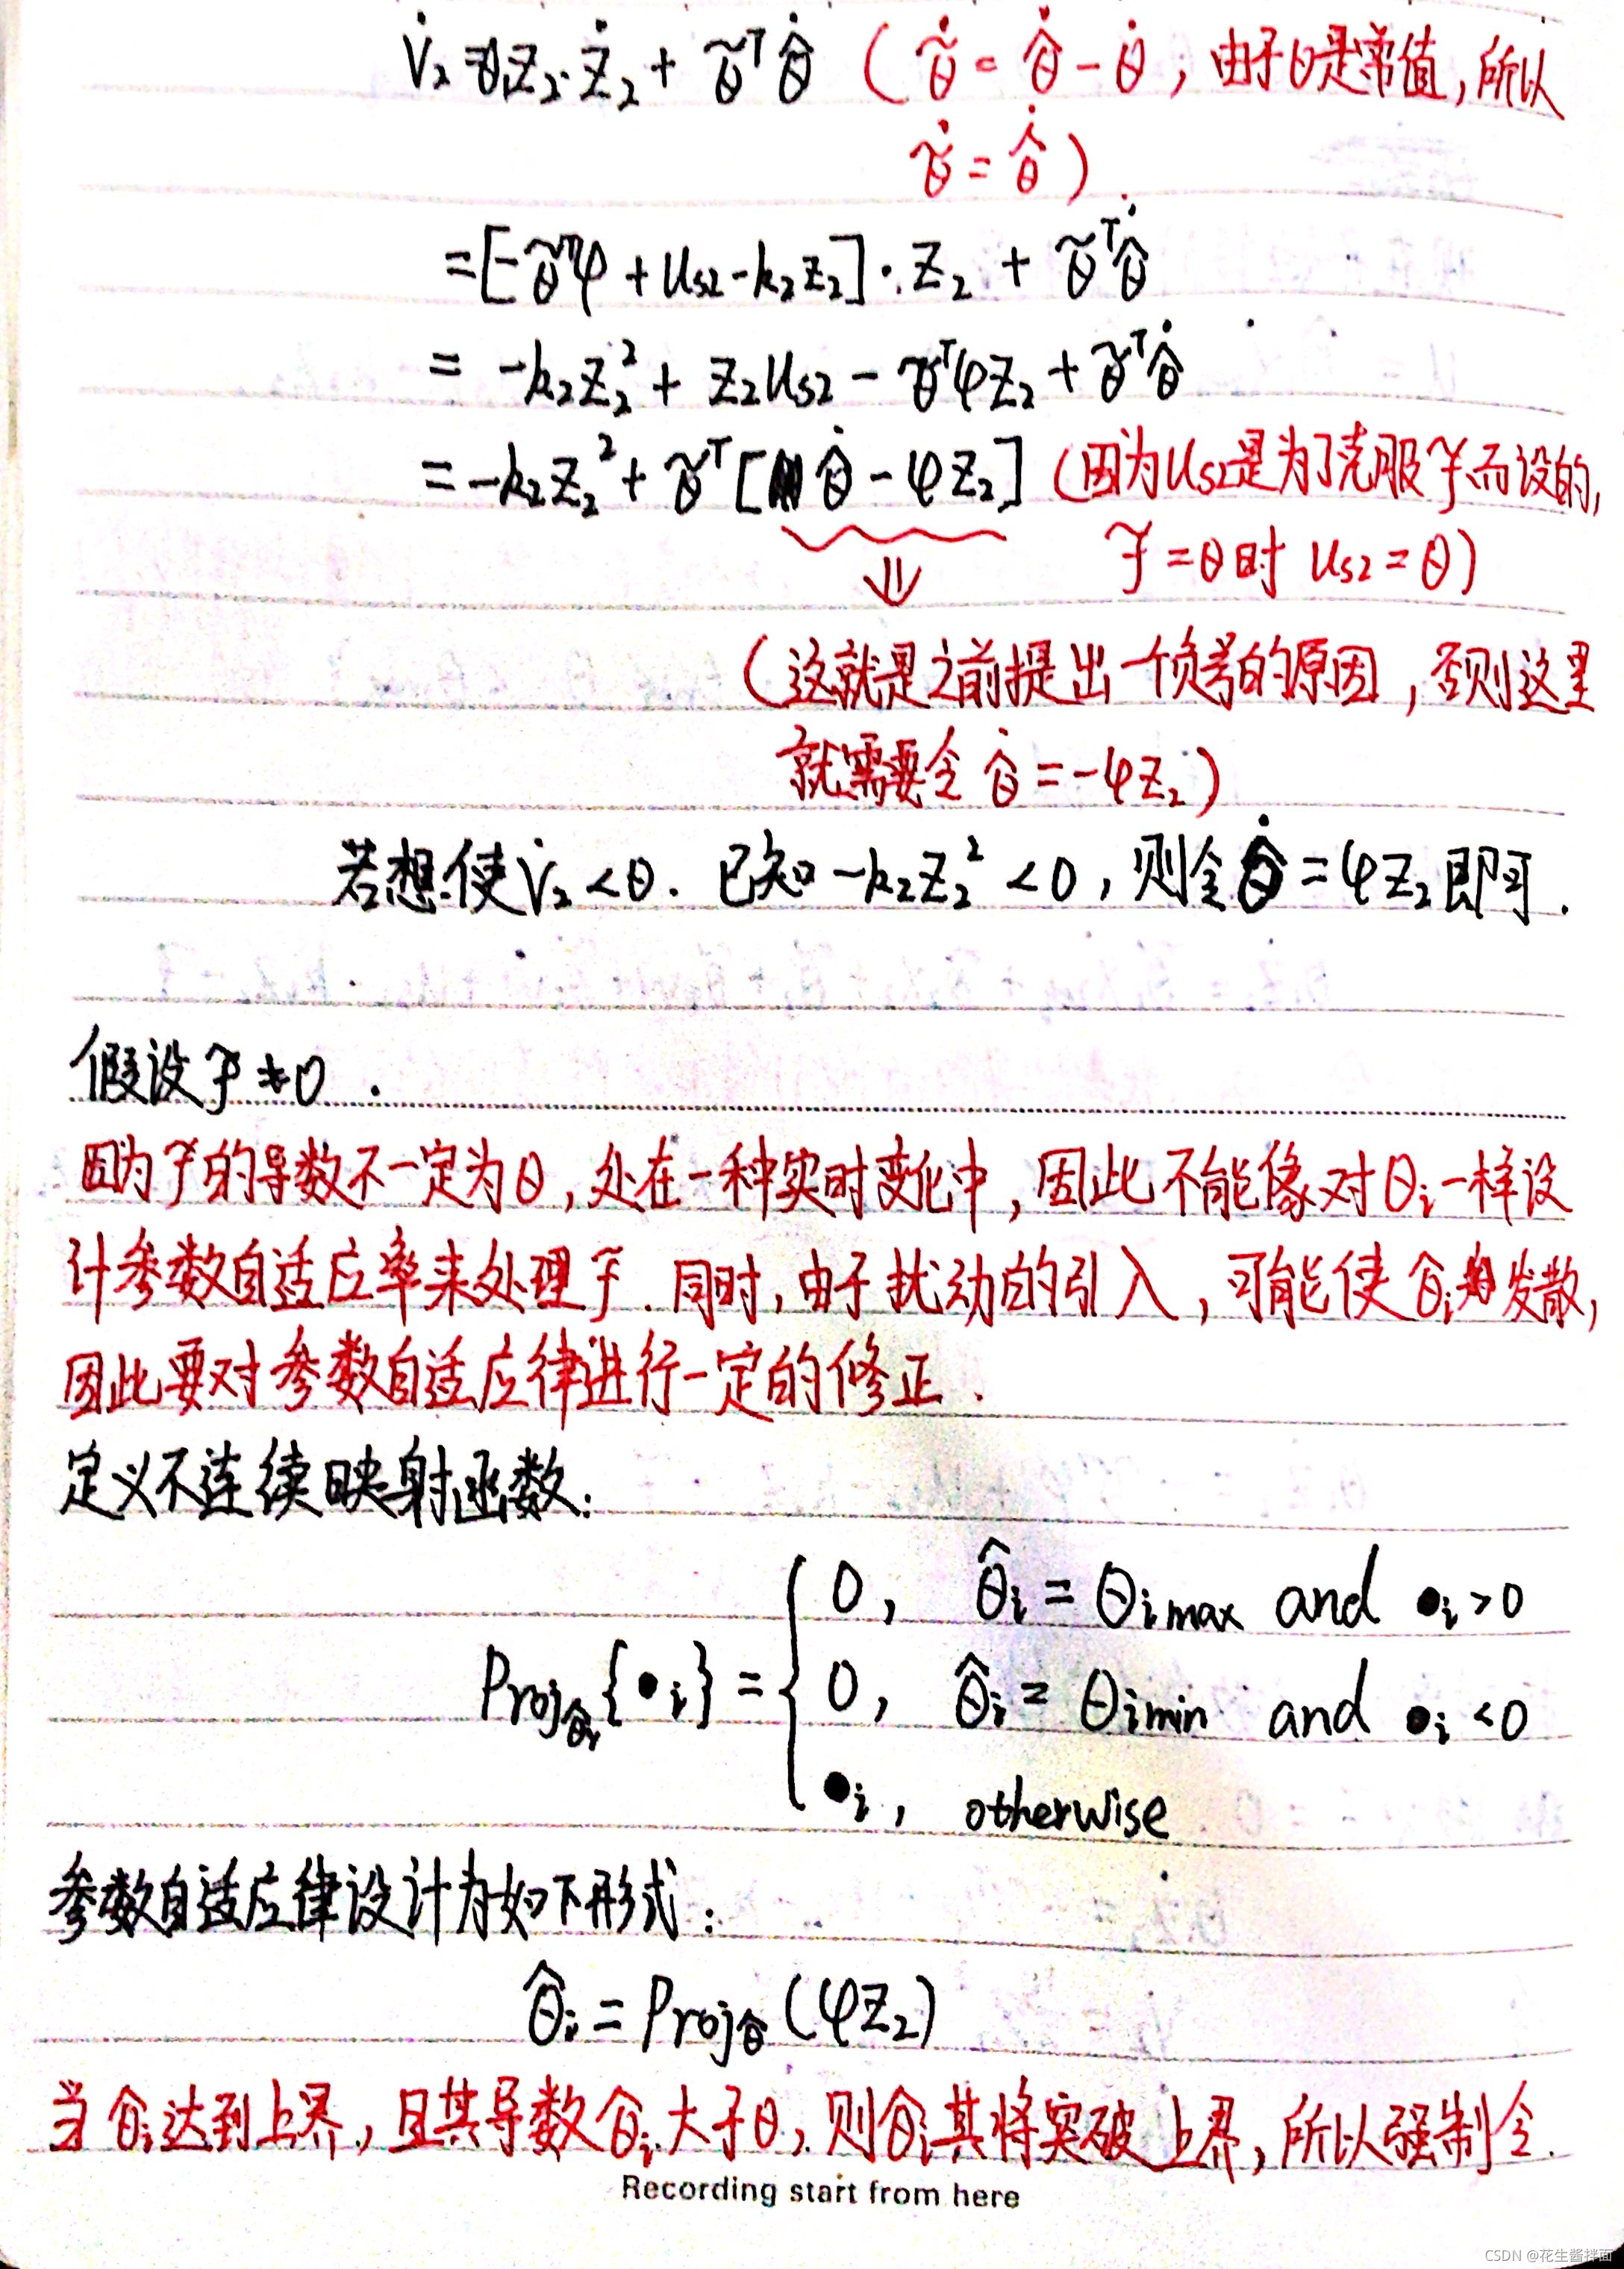 V̇₂ = θ₁z₂·ż₂ + θ̃ᵀθ̂̇ (θ̃̇ = θ̂̇ - θ̇, 由于θ是常值, 所以
θ̃̇ = θ̂̇).
=[-θ̃ᵀφ + u_{s2} - k₂z₂]·z₂ + θ̃ᵀθ̂̇
= -k₂z₂² + z₂u_{s2} - θ̃ᵀφz₂ + θ̃ᵀθ̂̇
= -k₂z₂² + θ̃ᵀ[θ̂̇ - φz₂] (因为u_{s2}是为了克服f̃而设的,
⇓ f̃=0时 u_{s2}=0)
(这就是之前提出一个负号的原因, 否则这里
就需要令 θ̂̇ = -φz₂)
若想使V̇₂<0. 已知 -k₂z₂²<0, 则令θ̂̇ = φz₂即可.
假设f̃≠0.
因为f̃的导数不一定为0, 处在一种实时变化中, 因此不能像对θᵢ一样设
计参数自适应率来处理f̃. 同时, 由于扰动的引入, 可能使θ̂ᵢ发散,
因此要对参数自适应律进行一定的修正.
定义不连续映射函数:
0, θ̂ᵢ = θ_{imax} and •ᵢ>0
Proj_{θ̂ᵢ}{•ᵢ} = { 0, θ̂ᵢ = θ_{imin} and •ᵢ<0
•ᵢ, otherwise
参数自适应律设计为如下形式:
θ̂ᵢ = Proj_{θ̂}(φz₂)
当θ̂ᵢ达到上界, 且其导数θ̂ᵢ大于0, 则θ̂ᵢ其将突破上界, 所以强制令.
Recording start from here
CSDN @花生酱拌面